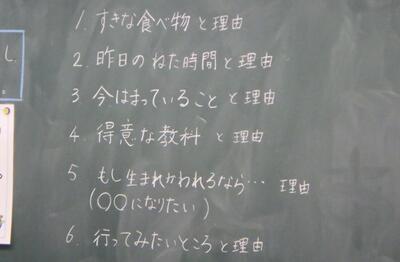 1. すきな食べ物と理由
2. 昨日のねた時間と理由
3. 今はまっていることと理由
4. 得意な教科と理由
5. もし生まれかわれるなら… 理由
(〇〇になりたい)
6. 行ってみたいところと理由
し